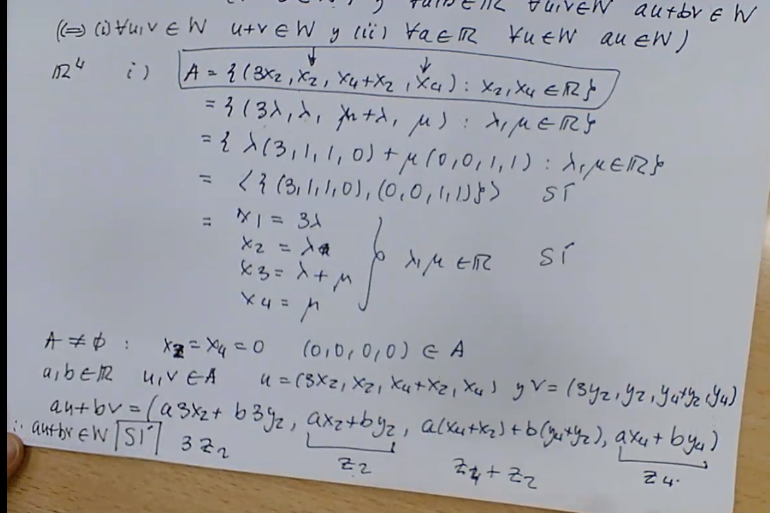 ∀a,b∈ℝ ∀u,v∈W au+bv∈W
(⇔ (i) ∀u,v∈W u+v∈W y (ii) ∀a∈ℝ ∀u∈W au∈W)
ℝ⁴ i) A = {(3x₂, x₂, x₄+x₂, x₄) : x₂,x₄∈ℝ}
= {(3λ, λ, μ+λ, μ) : λ,μ∈ℝ}
= {λ(3,1,1,0) + μ(0,0,1,1) : λ,μ∈ℝ}
= <{(3,1,1,0), (0,0,1,1)}> SÍ
= x₁ = 3λ
x₂ = λ
x₃ = λ+μ } λ,μ∈ℝ SÍ
x₄ = μ
A ≠ ∅ : x₂ = x₄ = 0 (0,0,0,0) ∈ A
a,b∈ℝ u,v∈A u = (3x₂, x₂, x₄+x₂, x₄) y v = (3y₂, y₂, y₄+y₂, y₄)
au+bv = (a3x₂ + b3y₂, ax₂+by₂, a(x₄+x₂)+b(y₄+y₂), ax₄+by₄)
∴ au+bv∈W SÍ 3z₂ z₂ z₄+z₂ z₄.